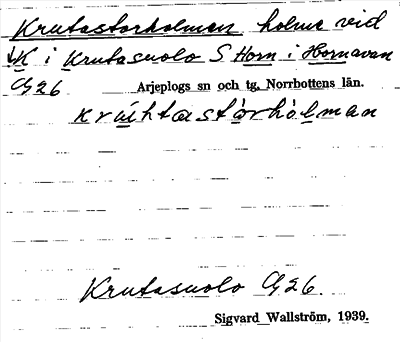 Krutastorholmen holme vid
VK i Krutasuolo S Horn i Hornavan
G26
Arjeplogs sn och tg, Norrbottens län.
krúhtastòrhòlman
Krutasuolo G26.
Sigvard Wallström, 1939.